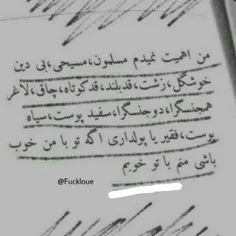 من اهمیت نمیدم مسلمون،مسیحی،بی دین
خوشگل،زشت،قدبلند،قدکوتاه،چاق،لاغر
همجنسگرا،دوجنسگرا،سفید پوست،سیاه
پوست،فقیر یا پولداری اگه تو با من خوب
باشی منم با تو خوبم
@Fuckloue